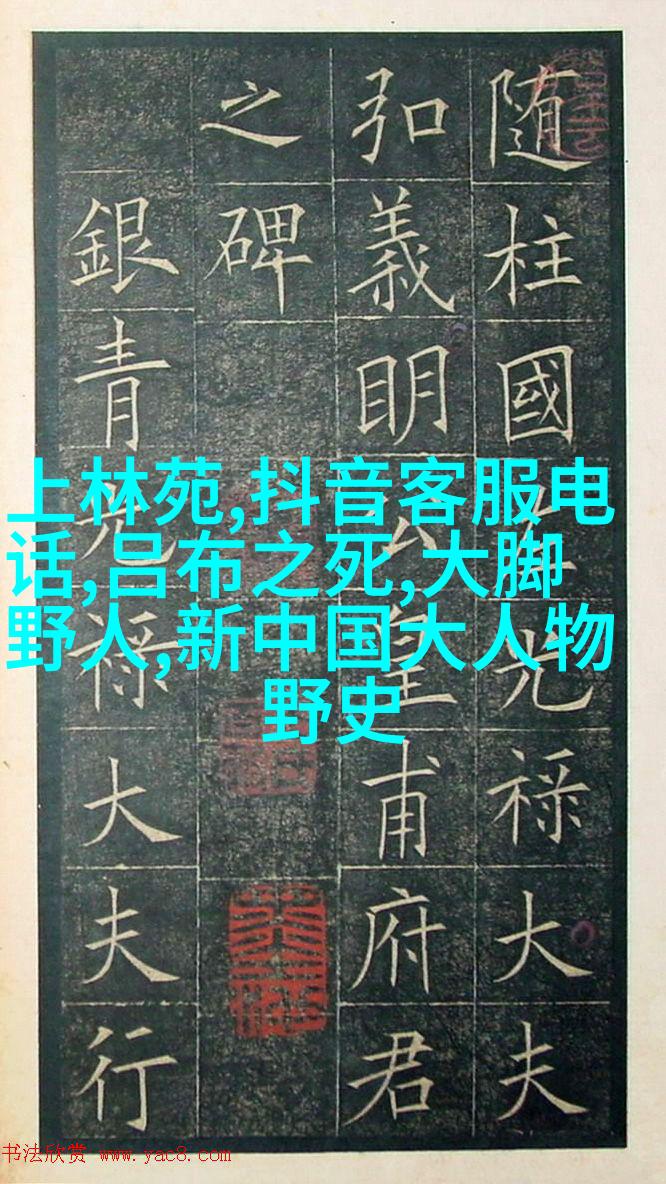 随柱國左光祿大夫
弘義明公皇甫府君
之碑
銀青光祿大夫行
上林苑,抖音客服电
话,吕布之死,大脚
野人,新中国大人物
野史
书法欣赏 www.yac8.com